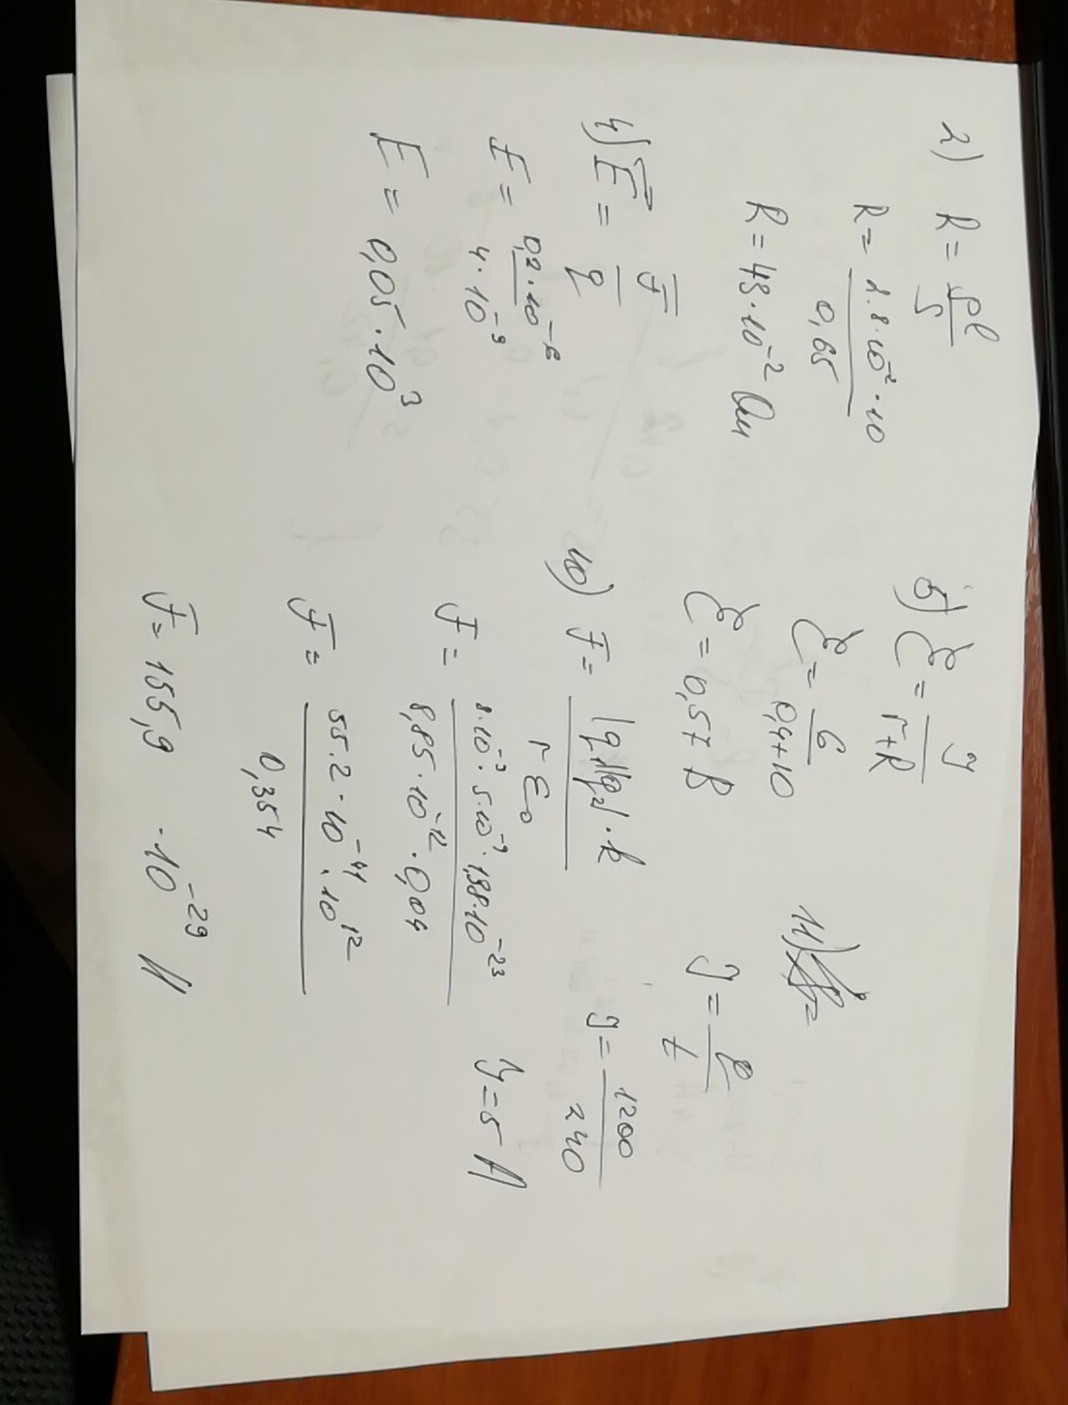 2) R = ρl / S
R = 2.8·10⁻²·10 / 0,65
R = 43·10⁻² Ом
4) E⃗ = F⃗ / q
E = 0,2·10⁻⁶ / 4·10⁻⁹
E = 0,05·10³
6) ℰ = I / r+R
ℰ = 6 / 0,4+10
ℰ = 0,57 В
10) F = |q₁||q₂|·k / r ε₀
F = 8·10⁻⁹·5·10⁻⁹·1,38·10⁻²³ / 8,85·10⁻¹²·0,04
F = 55.2·10⁻⁴¹·10¹² / 0,354
F = 155,9 ·10⁻²⁹ Н
11)
I = q / t
I = 1200 / 240
I = 5 А